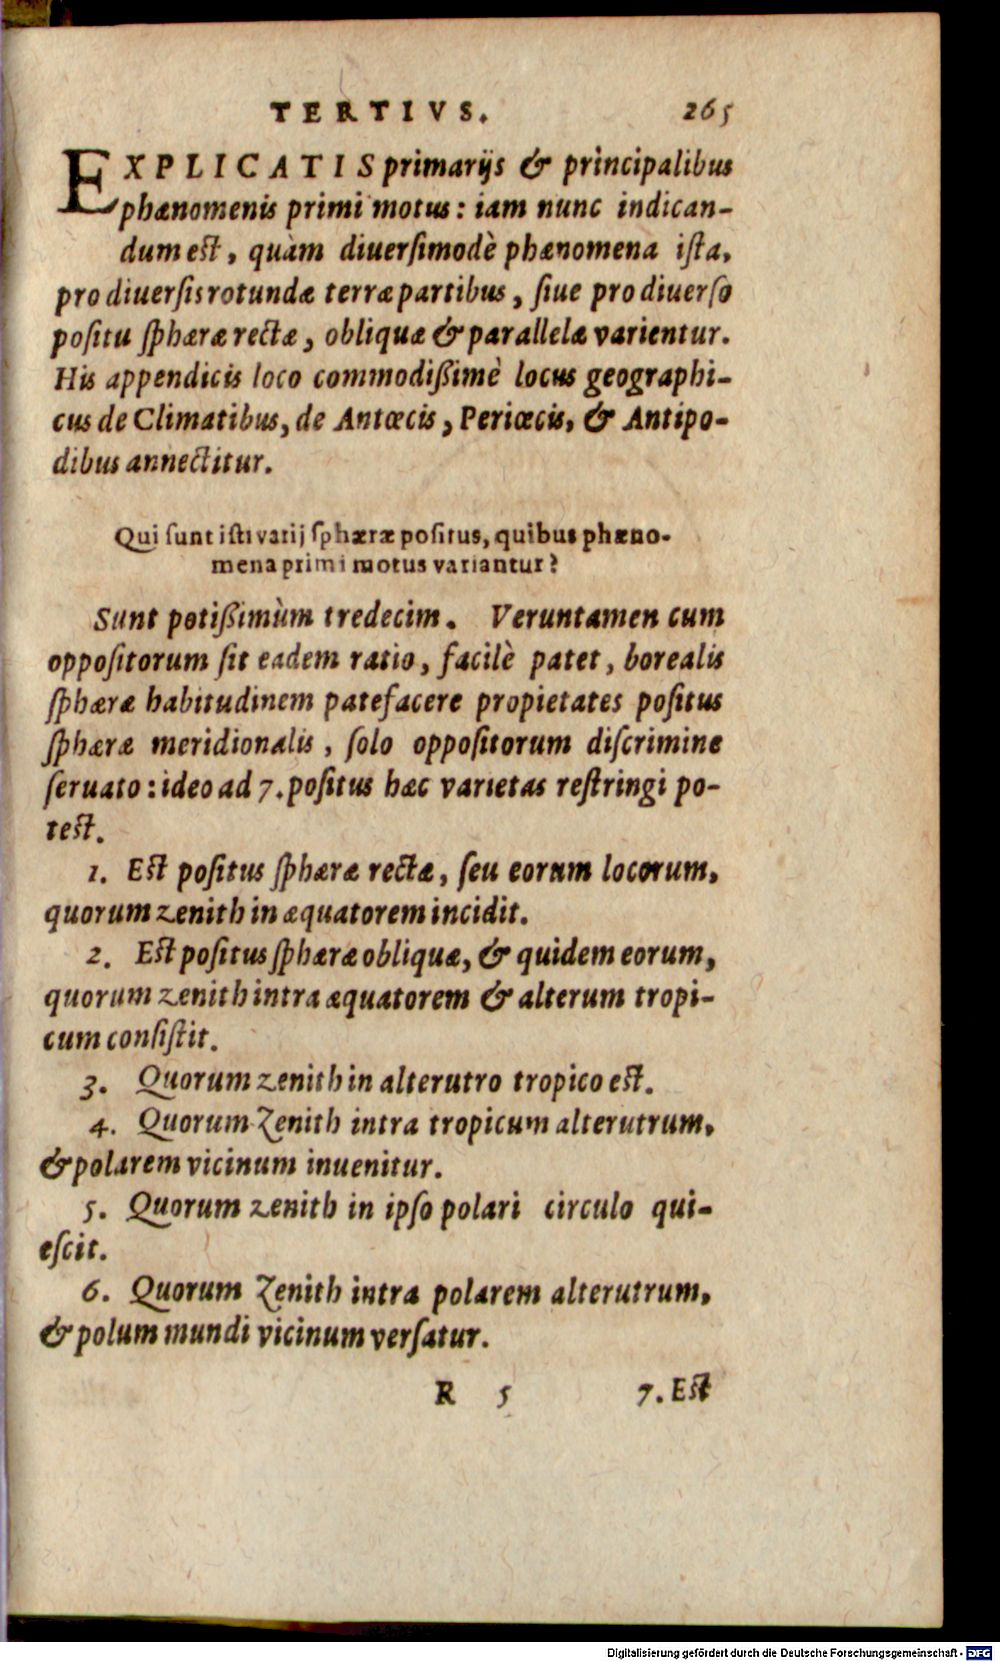 TERTIVS. 265
EXPLICATIS primarijs & principalibus
phænomenis primi motus: iam nunc indican-
dum est, quàm diuersimodè phænomena ista,
pro diuersis rotundæ terræ partibus, siue pro diuerso
positu sphæræ rectæ, obliquæ & parallelæ varientur.
His appendicis loco commodißimè locus geographi-
cus de Climatibus, de Antœcis, Periœcis, & Antipo-
dibus annectitur.
Qui sunt isti varij sphæræ positus, quibus phæno-
mena primi motus variantur?
Sunt potißimùm tredecim. Veruntamen cum
oppositorum sit eadem ratio, facilè patet, borealis
sphæræ habitudinem patefacere propietates positus
sphæræ meridionalis, solo oppositorum discrimine
seruato: ideo ad 7. positus hæc varietas restringi po-
test.
1. Est positus sphæræ rectæ, seu eorum locorum,
quorum zenith in æquatorem incidit.
2. Est positus sphæræ obliquæ, & quidem eorum,
quorum zenith intra æquatorem & alterum tropi-
cum consistit.
3. Quorum zenith in alterutro tropico est.
4. Quorum Zenith intra tropicum alterutrum,
& polarem vicinum inuenitur.
5. Quorum zenith in ipso polari circulo qui-
escit.
6. Quorum Zenith intra polarem alterutrum,
& polum mundi vicinum versatur.
R 5 7. Est
Digitalisierung gefördert durch die Deutsche Forschungsgemeinschaft - DFG